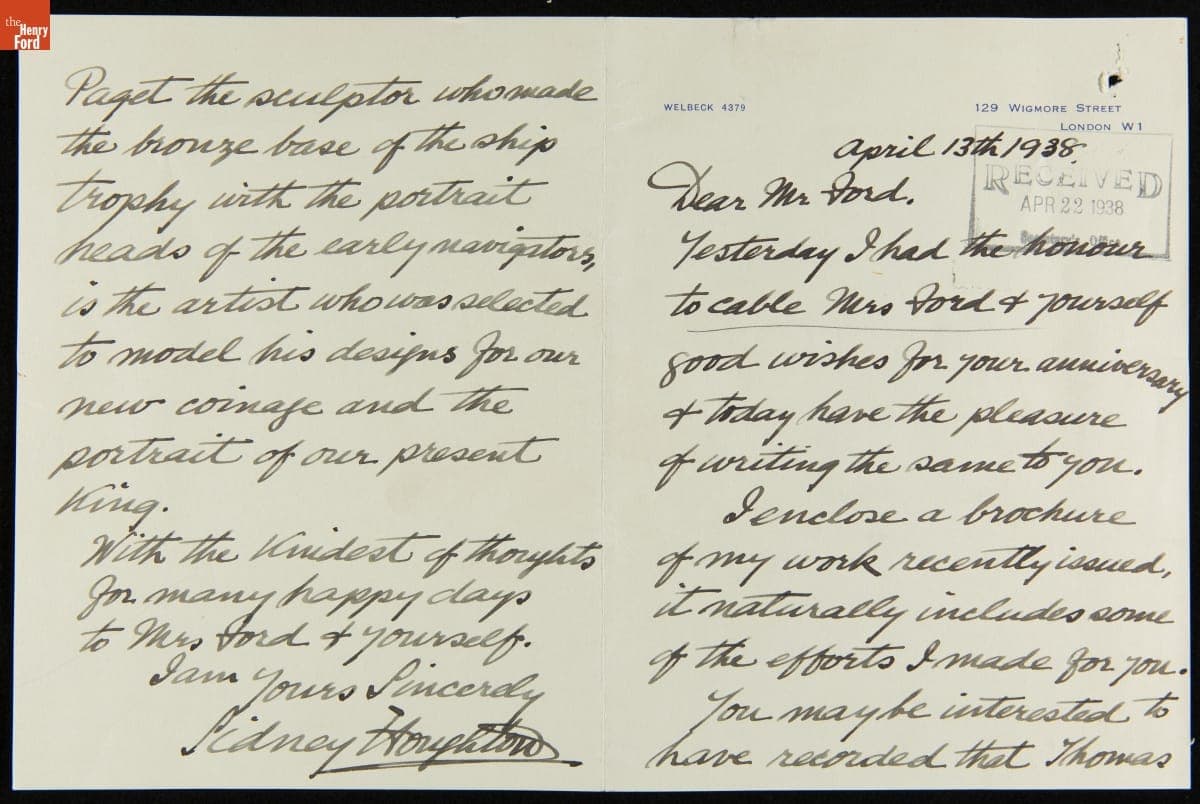 the
Henry
Ford
WELBECK 4379
129 WIGMORE STREET
LONDON W1
April 13th 1938.
RECEIVED
APR 22 1938
Dear Mr Ford.
Yesterday I had the honour
to cable Mrs Ford & yourself
good wishes for your anniversary
& today have the pleasure
of writing the same to you.
I enclose a brochure
of my work recently issued,
it naturally includes some
of the efforts I made for you.
You may be interested to
have recorded that Thomas
Paget the sculptor who made
the bronze base of the ship
trophy with the portrait
heads of the early navigators,
is the artist who was selected
to model his designs for our
new coinage and the
portrait of our present
King.
With the Kindest of thoughts
for many happy days
to Mrs Ford & yourself.
I am
Yours Sincerely
Sidney Houghton